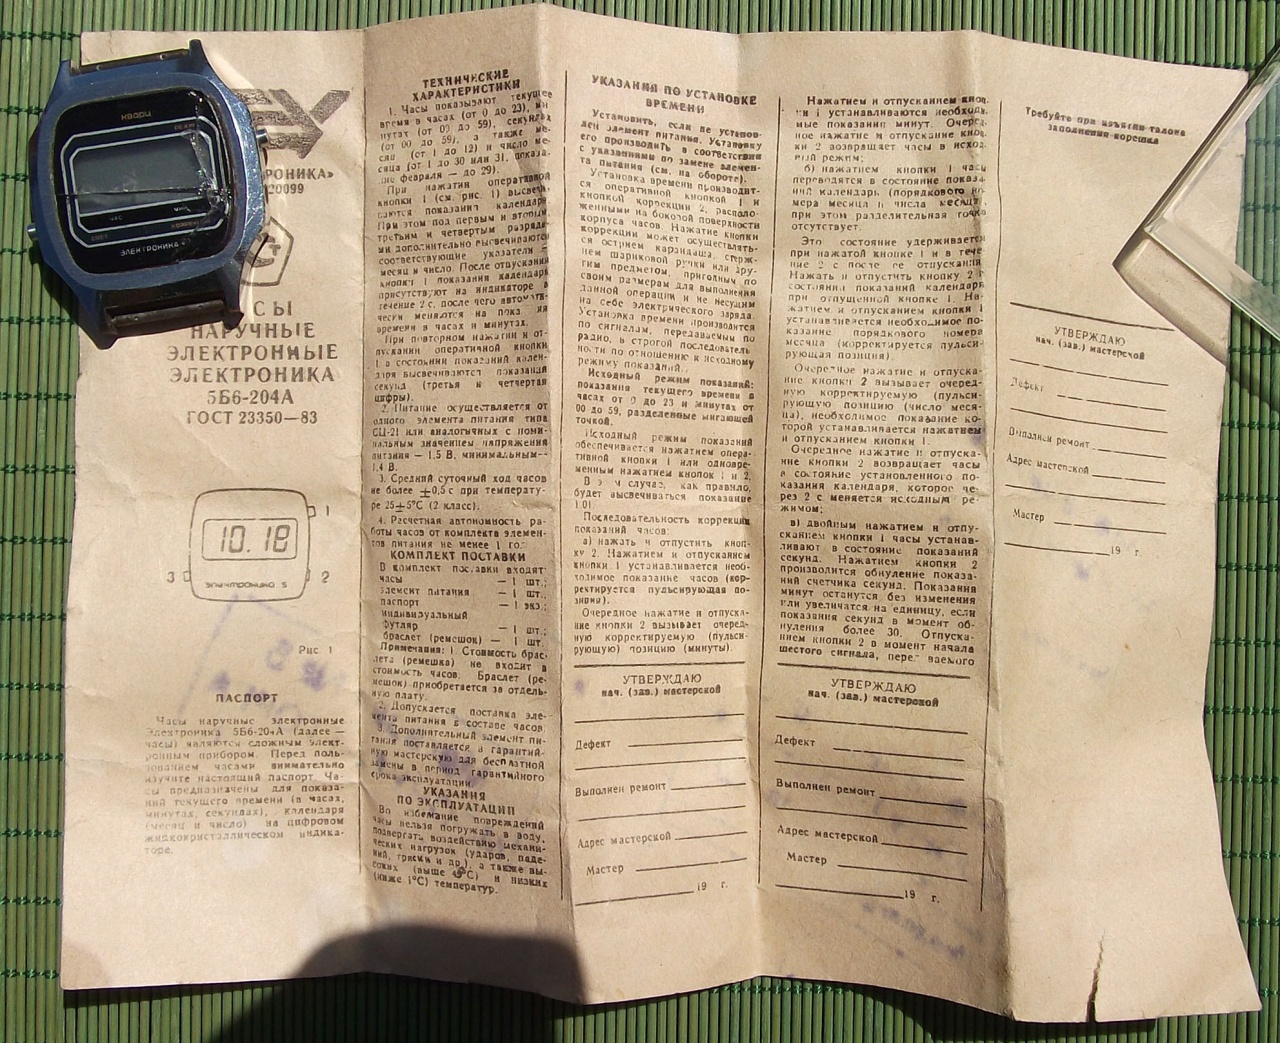 КВАРЦ
ЭЛЕКТРОНИКА
НАРУЧНЫЕ
ЭЛЕКТРОННЫЕ
ЭЛЕКТРОНИКА
5Б6-204А
ГОСТ 23350—83
1
10.18
3
2
Рис 1
ПАСПОРТ
Часы наручные электронные
Электроника 5Б6-204А (далее —
часы) являются сложным элект-
ронным прибором. Перед поль-
зованием часами внимательно
изучите настоящий паспорт. Ча-
сы предназначены для показа-
ний текущего времени (в часах,
минутах, секундах), календаря
(месяц и число) на цифровом
жидкокристаллическом индика-
торе.
ТЕХНИЧЕСКИЕ
ХАРАКТЕРИСТИКИ
1. Часы показывают текущее
время в часах (от 0 до 23), ми
нутах (от 00 до 59), секундах
(от 00 до 59), а также ме-
сяц (от 1 до 12) и число ме-
сяца (от 1 до 30 или 31, показа.
ние февраля — до 29).
При нажатии оперативной
кнопки 1 (см. рис. 1) высвечи-
ваются показания календаря
При этом под первым и вторым,
третьим и четвертым разряда-
ми дополнительно высвечиваются
соответствующие указатели —
месяц и число. После отпускания
кнопки 1 показания календаря
присутствуют на индикаторе в
течение 2 с, после чего автомати-
чески меняются на показания
времени в часах и минутах.
При повторном нажатии и от-
пускании оперативной кнопки
1 в состоянии показаний кален-
даря высвечиваются показания
секунд (третья и четвертая
цифры).
2. Питание осуществляется от
одного элемента питания типа
СЦ-21 или аналогичных с номи-
нальным значением напряжения
питания — 1,5 В, минимальным—
1,4 В.
3. Средний суточный ход часов
не более ±0,5 с при температу-
ре 25±5°С (2 класс).
4. Расчетная автономность ра-
боты часов от комплекта элемен-
тов питания не менее 1 го
КОМПЛЕКТ ПОСТАВКИ
В комплект поставки входят:
часы — 1 шт.;
элемент питания — 1 шт.;
паспорт — 1 экз.;
индивидуальный
футляр — 1 шт.;
браслет (ремешок) — 1 шт.
Примечания: 1. Стоимость брас-
лета (ремешка) не входит в
стоимость часов. Браслет (ре-
мешок) приобретается за отдель-
ную плату.
2. Допускается поставка эле-
мента питания в составе часов.
3. Дополнительный элемент пи-
тания поставляется в гарантий-
ную мастерскую для бесплатной
замены в период гарантийного
срока эксплуатации.
УКАЗАНИЯ
ПО ЭКСПЛУАТАЦИИ
Во избежание повреждений
часы нельзя погружать в воду,
подвергать воздействию механи-
ческих нагрузок (ударов, паде-
ний, тряски и др.), а также вы-
соких (выше °С) и низких
(ниже 1°С) температур.
УКАЗАНИЯ ПО УСТАНОВКЕ
ВРЕМЕНИ
Установить, если не установ-
лен элемент питания. Установку
его производить в соответствии
с указаниями по замене элемен-
та питания (см. на обороте).
Установка времени производит-
ся оперативной кнопкой 1 и
кнопкой коррекции 2, располо-
женными на боковой поверхности
корпуса часов. Нажатие кнопки
коррекции может осуществлять-
ся острием карандаша, стерж-
нем шариковой ручки или дру-
гим предметом, пригодным по
своим размерам для выполнения
данной операции и не несущим
на себе электрического заряда.
Установка времени производится
по сигналам, передаваемым по
радио, в строгой последователь
ности по отношению к исходному
режиму показаний.
Исходный режим показаний:
показания текущего времени в
часах от 0 до 23 и минутах от
00 до 59, разделенные мигающей
точкой.
Исходный режим показаний
обеспечивается нажатием опера-
тивной кнопки 1 или одновре-
менным нажатием кнопок 1 и 2.
В э м случае, как правило,
будет высвечиваться показание
1.01
Последовательность коррекции
показаний часов:
а) нажать и отпустить кноп-
ку 2. Нажатием и отпусканием
кнопки 1 устанавливается необ-
ходимое показание часов (кор-
ректируется пульсирующая по-
зиция).
Очередное нажатие и отпуска-
ние кнопки 2 вызывает очеред-
ную корректируемую (пульси-
рующую) позицию (минуты).
УТВЕРЖДАЮ
нач. (зав.) мастерской
Дефект
Выполнен ремонт
Адрес мастерской
Мастер
19 г.
Нажатием и отпусканием кноп.
ки 1 устанавливаются необходи-
мые показания минут. Очеред-
ное нажатие и отпускание кноп.
ки 2 возвращает часы в исход-
ный режим;
б) нажатием кнопки 1 часы
переводятся в состояние показа-
ний календарь (порядкового но-
мера месяца и числа месяца),
при этом разделительная точка
отсутствует.
Это состояние удерживается
при нажатой кнопке 1 и в тече
ние 2 с после ее отпускания
Нажать и отпустить кнопку 2 в
состоянии показаний календаря
при отпущенной кнопке 1. На-
устанавливается необходимое по-
казание порядкового номера
месяца (корректируется пульси-
рующая позиция).
Очередное нажатие и отпуска-
ние кнопки 2 вызывает очеред-
ную корректируемую (пульси-
рующую позицию (число меся-
ца), необходимое показание ко-
торой устанавливается нажатием
и отпусканием кнопки 1.
Очередное нажатие и отпуска-
ние кнопки 2 возвращает часы
в состояние установленного по-
казания календаря, которое че-
рез 2 с меняется исходным ре-
жимом;
в) двойным нажатием и отпу-
сканием кнопки 1 часы устанав-
ливают в состояние показаний
секунд. Нажатием кнопки 2
производится обнуление показа-
ний счетчика секунд. Показания
минут останутся без изменения
или увеличатся на единицу, если
показания секунд в момент об-
нуления более 30. Отпуска-
нием кнопки 2 в момент начала
шестого сигнала, передаваемого
УТВЕРЖДАЮ
нач. (зав.) мастерской
Дефект
Выполнен ремонт
Адрес мастерской
Мастер
19 г.
Требуйте при изъятии талона
заполнения корешка
УТВЕРЖДАЮ
нач. (зав.) мастерской
Дефект
Выполнен ремонт
Адрес мастерской
Мастер
19 г.